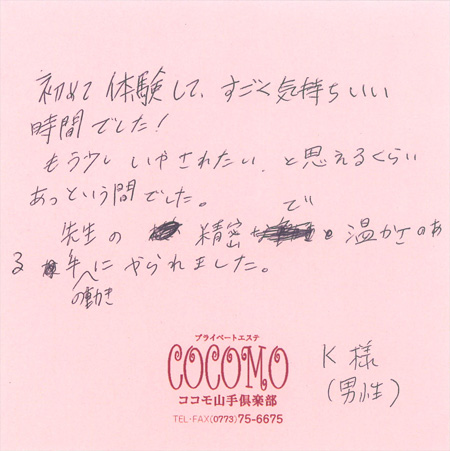 初めて体験して、すごく気持ちいい
時間でした！
もう少しいやされたい、と思えるくらい
あっという間でした。
先生の 精密で 温かさのあ
る手の動きにやられました。
プライベートエステ
COCOMO
ココモ山手倶楽部
TEL・FAX(0773)75-6675
K様
(男性)